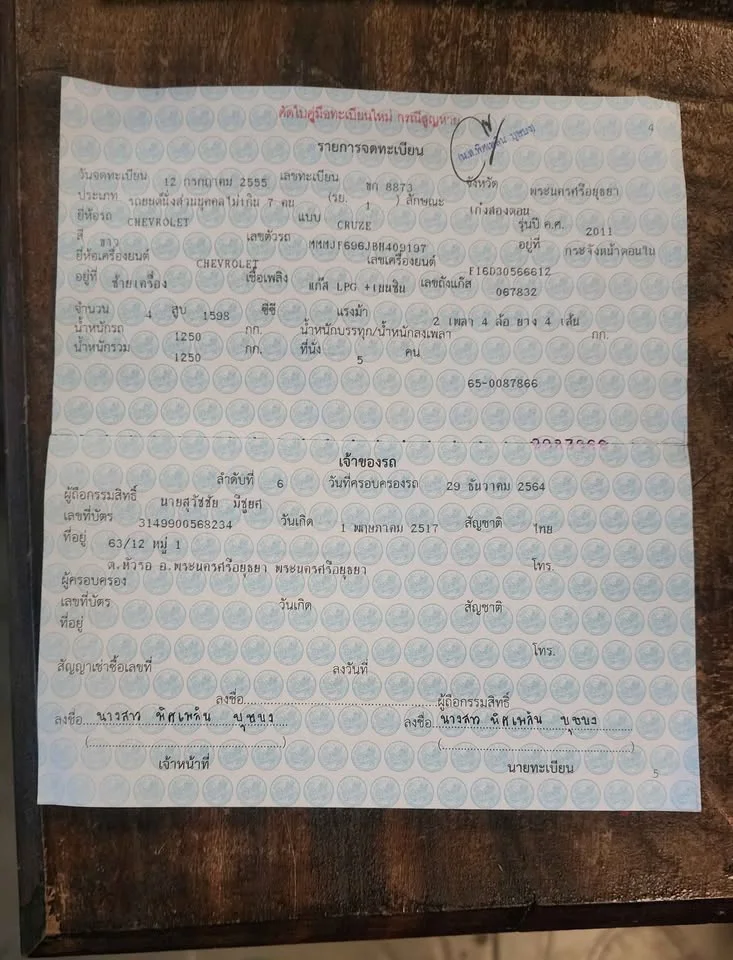 คัดใบคู่มือทะเบียนใหม่ กรณีสูญหาย
4
รายการจดทะเบียน
วันจดทะเบียน 12 กรกฎาคม 2555 เลขทะเบียน ขก 8873 จังหวัด พระนครศรีอยุธยา
ประเภท รถยนต์นั่งส่วนบุคคลไม่เกิน 7 คน (รย. 1 ) ลักษณะ เก๋งสองตอน
ยี่ห้อรถ CHEVROLET แบบ CRUZE รุ่นปี ค.ศ. 2011
สี ขาว เลขตัวรถ MMMJF696JBH409197 อยู่ที่ กระจังหน้าตอนใน
ยี่ห้อเครื่องยนต์ CHEVROLET เลขเครื่องยนต์ F16D30566612
อยู่ที่ ซ้ายเครื่อง เชื้อเพลิง แก๊ส LPG +เบนซิน เลขถังแก๊ส 067832
จำนวน 4 สูบ 1598 ซีซี แรงม้า 2 เพลา 4 ล้อ ยาง 4 เส้น
น้ำหนักรถ 1250 กก. น้ำหนักบรรทุก/น้ำหนักลงเพลา กก.
น้ำหนักรวม 1250 กก. ที่นั่ง 5 คน
65-0087866
เจ้าของรถ
ลำดับที่ 6 วันที่ครอบครองรถ 29 ธันวาคม 2564
ผู้ถือกรรมสิทธิ์ นายสุวัชชัย มีชูยศ
เลขที่บัตร 3149900568234 วันเกิด 1 พฤษภาคม 2517 สัญชาติ ไทย
ที่อยู่ 63/12 หมู่ 1
ต.หัวรอ อ.พระนครศรีอยุธยา พระนครศรีอยุธยา โทร.
ผู้ครอบครอง
เลขที่บัตร วันเกิด สัญชาติ
ที่อยู่
โทร.
สัญญาเช่าซื้อเลขที่ ลงวันที่
ลงชื่อ ผู้ถือกรรมสิทธิ์
ลงชื่อ นางสาว ทิศเพลิน บุชบง ลงชื่อ นางสาว ทิศเพลิน บุชบง
เจ้าหน้าที่ นายทะเบียน
5